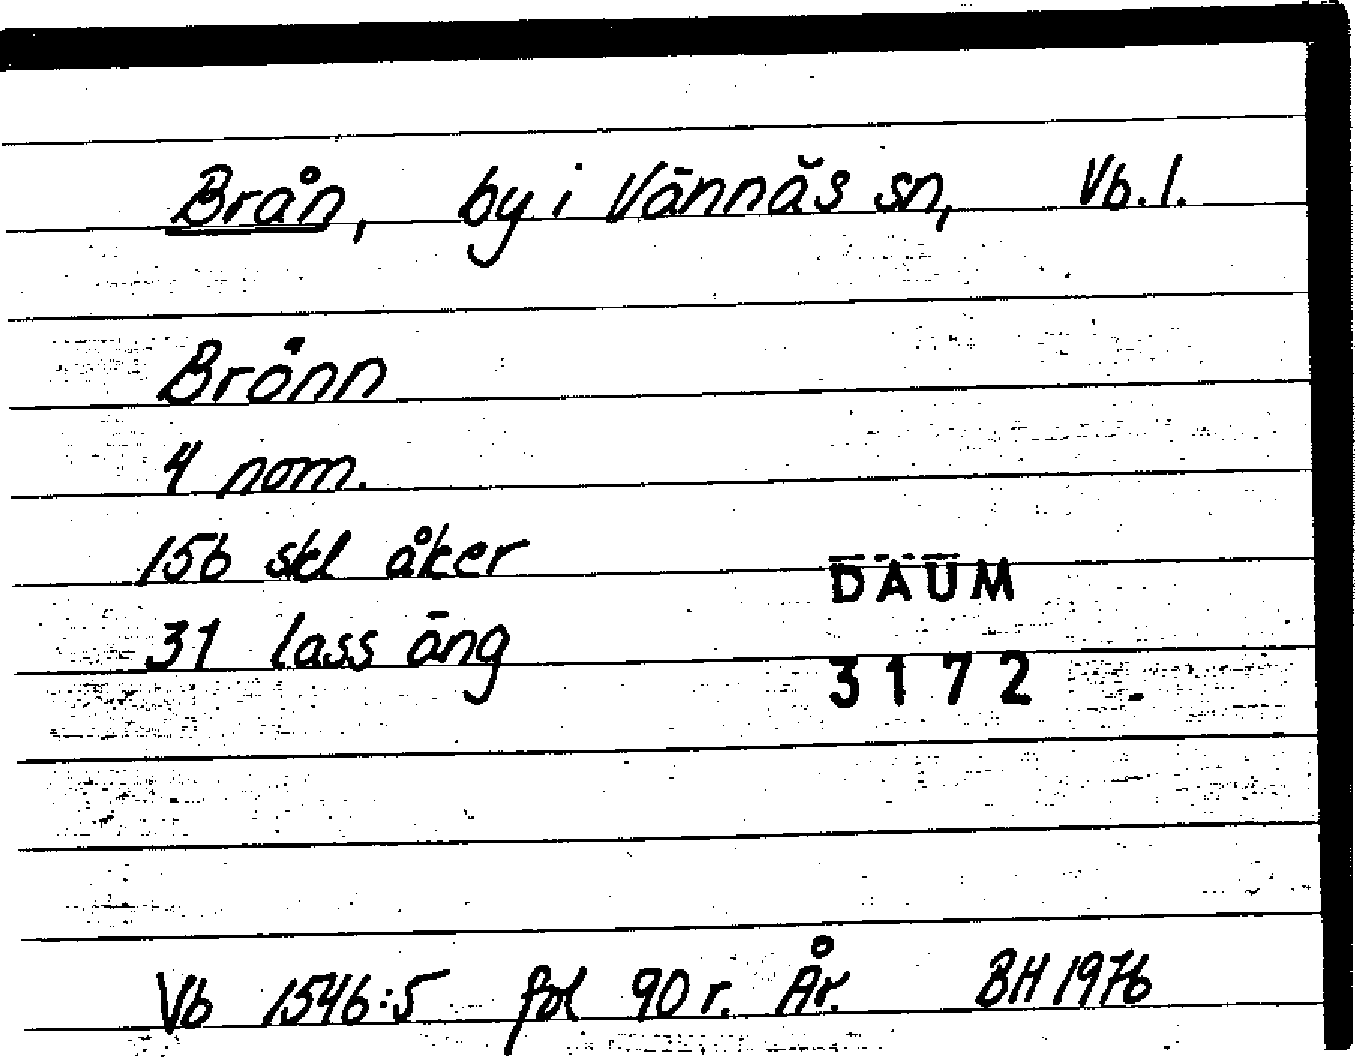 Brån, by i Vännäs sn, Vb. l.
Brånn
4 nom.
156 skl åker
DAUM
31 lass äng
3172
Vb 1546:5 fol 90 r. År. BH 1976